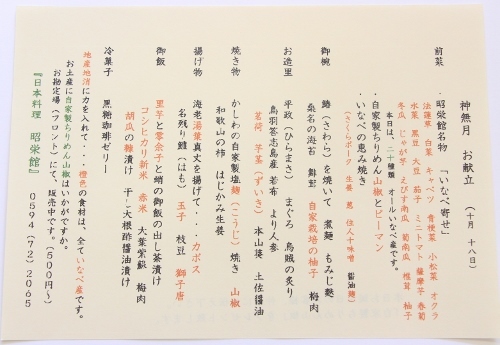 神無月　お献立　（十月　十八日）
前菜　・昭栄館名物　「いなべ寄せ」
法蓮草　白菜　キャベツ　青梗菜　小松菜　オクラ
水菜　黒豆　大豆　茄子　ミニトマト　薩摩芋　春菊
冬瓜　じゃが芋　えびす南瓜　菊南瓜　椎茸　柚子
本日は、二十種類　オールいなべ産です。
・自家製ちりめん山椒とピーマン
・いなべの恵み焼き
（さくらポーク　生姜　葱　住人十味噌　醤油麹）
御椀　鰆（さわら）を焼いて　煮麺　もみじ麩
桑名の海苔　舞茸　自家栽培の柚子　梅肉
お造里　平政（ひらまさ）　まぐろ　烏賊の炙り
鳥羽答志島産　若布　より人参
茗荷　芋茎（ずいき）　本山葵　土佐醤油
焼き物　かしわの自家製塩麹（こうじ）焼き　山椒
和歌山の柿　はじかみ生姜
揚げ物　海老湯葉真丈を揚げて・・・カボス
名残り鱧（はも）　玉子　枝豆　獅子唐
御飯　里芋と零余子と蛸の御飯の出し茶漬け
コシヒカリ新米　赤米　大葉紫蘇　梅肉
胡瓜の糠漬け　干し大根酢醤油漬け
冷菓子　黒糖珈琲ゼリー
地産地消に力を入れて・・橙色の食材は、全ていなべ産です。
お土産に自家製ちりめん山椒はいかがですか。
お勘定場（フロント）にて、販売中です。（５００円～）
『日本料理　昭栄館』　０５９４（７２）２０６５